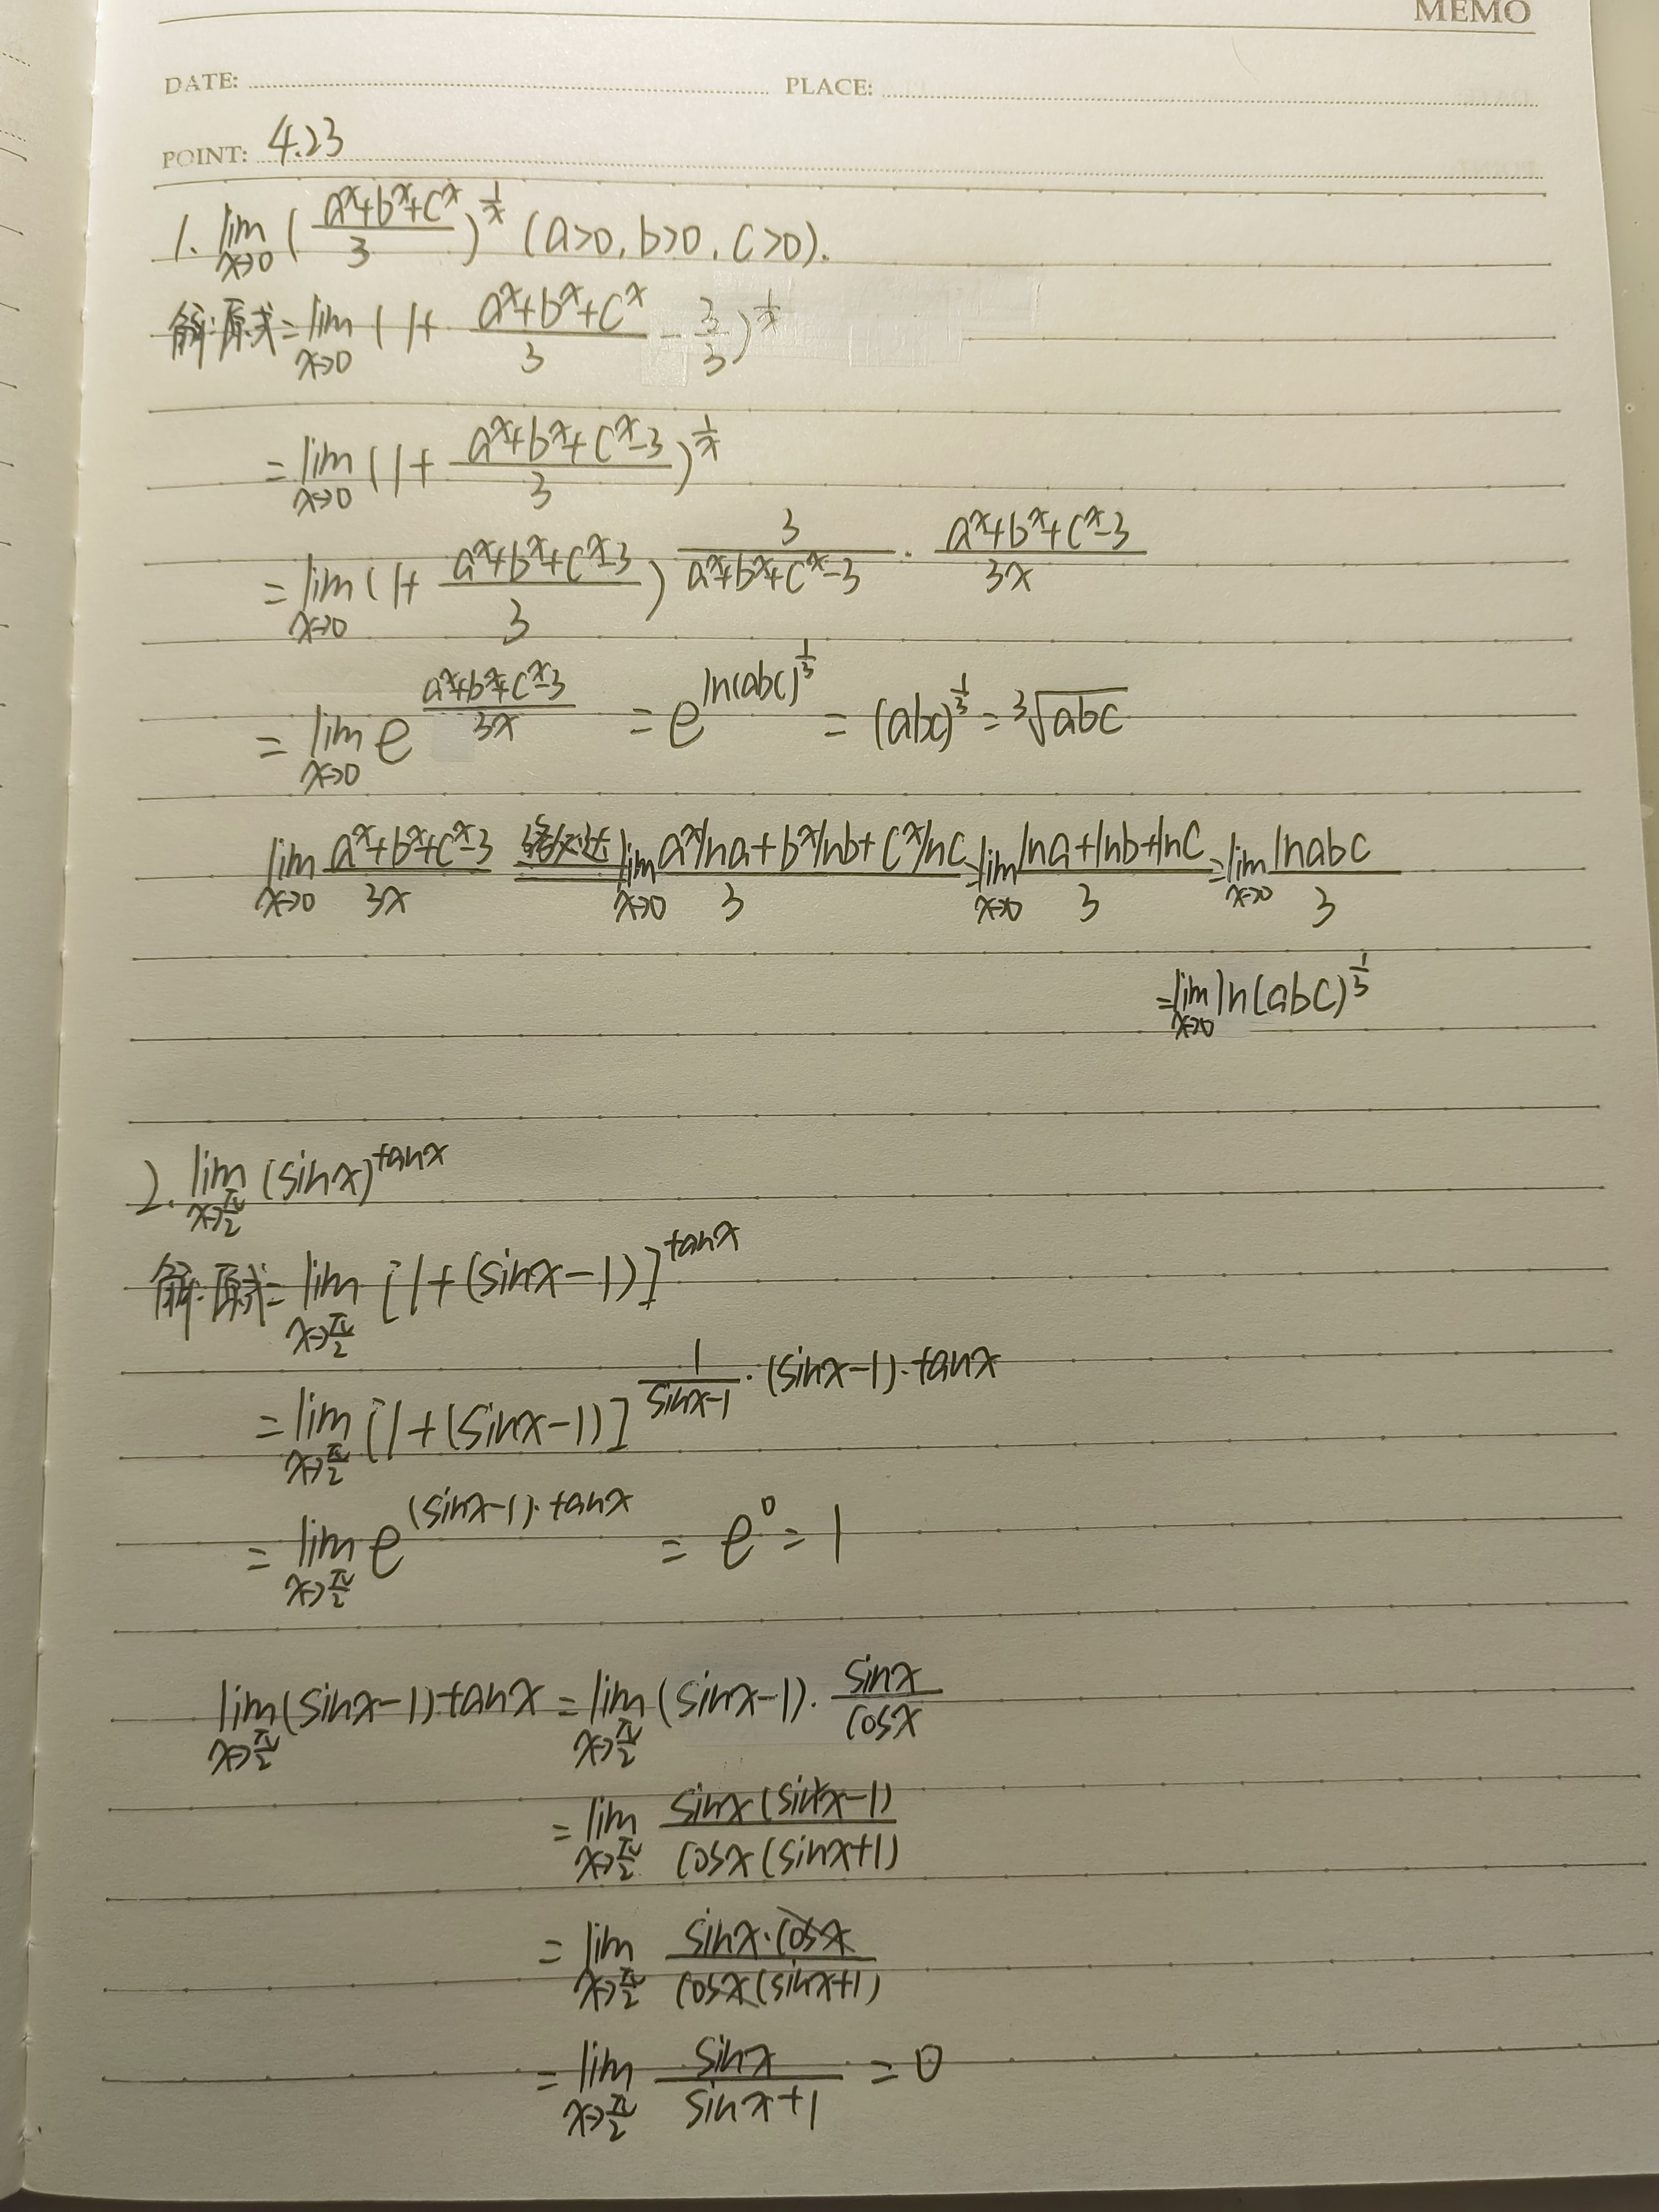 MEMO
DATE: PLACE:
POINT: 4.23
1. lim_{x→0} (\frac{a^x+b^x+c^x}{3})^{\frac{1}{x}} (a>0, b>0, c>0).
解:原式= lim_{x→0} (1+ \frac{a^x+b^x+c^x}{3} - \frac{3}{3})^{\frac{1}{x}}
= lim_{x→0} (1+ \frac{a^x+b^x+c^x-3}{3})^{\frac{1}{x}}
= lim_{x→0} (1+ \frac{a^x+b^x+c^x-3}{3})^{\frac{3}{a^x+b^x+c^x-3} · \frac{a^x+b^x+c^x-3}{3x}}
= lim_{x→0} e^{\frac{a^x+b^x+c^x-3}{3x}} = e^{ln(abc)^{\frac{1}{3}}} = (abc)^{\frac{1}{3}} = ∛{abc}
lim_{x→0} \frac{a^x+b^x+c^x-3}{3x} 洛必达 lim_{x→0} \frac{a^x lna+b^x lnb+c^x lnc}{3} = lim_{x→0} \frac{lna+lnb+lnc}{3} = lim_{x→0} \frac{lnabc}{3}
= lim_{x→0} ln(abc)^{\frac{1}{3}}
2. lim_{x→\frac{π}{2}} (sinx)^{tanx}
解:原式= lim_{x→\frac{π}{2}} [1+(sinx-1)]^{tanx}
= lim_{x→\frac{π}{2}} [1+(sinx-1)]^{\frac{1}{sinx-1} · (sinx-1) · tanx}
= lim_{x→\frac{π}{2}} e^{(sinx-1)·tanx} = e^0 = 1
lim_{x→\frac{π}{2}} (sinx-1)·tanx = lim_{x→\frac{π}{2}} (sinx-1)· \frac{sinx}{cosx}
= lim_{x→\frac{π}{2}} \frac{sinx(sin²x-1)}{cosx(sinx+1)}
= lim_{x→\frac{π}{2}} \frac{sinx·cosx}{cosx(sinx+1)}
= lim_{x→\frac{π}{2}} \frac{sinx}{sinx+1} = 0